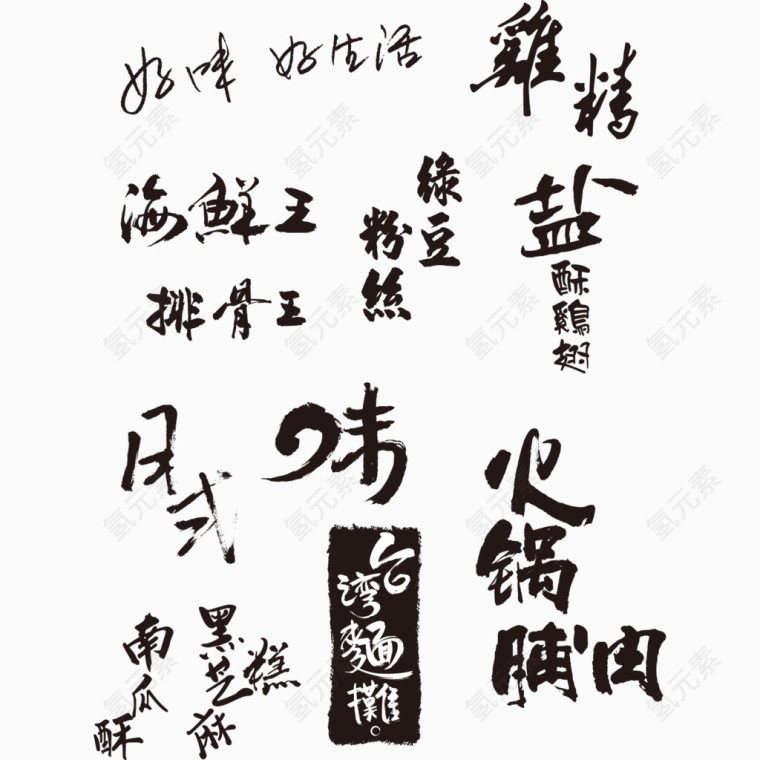 好味
好生活
雞精
海鮮王
綠豆
粉絲
盐
酥鷄翅
排骨王
日式
味
火
锅
脯肉
台
湾
麵
攤。
南瓜酥
黑芝麻
糕
氢元素
氢元素
氢元素
氢元素
氢元素
氢元素
氢元素
氢元素
氢元素
氢元素
氢元素
氢元素
氢元素
氢元素
氢元素
氢元素